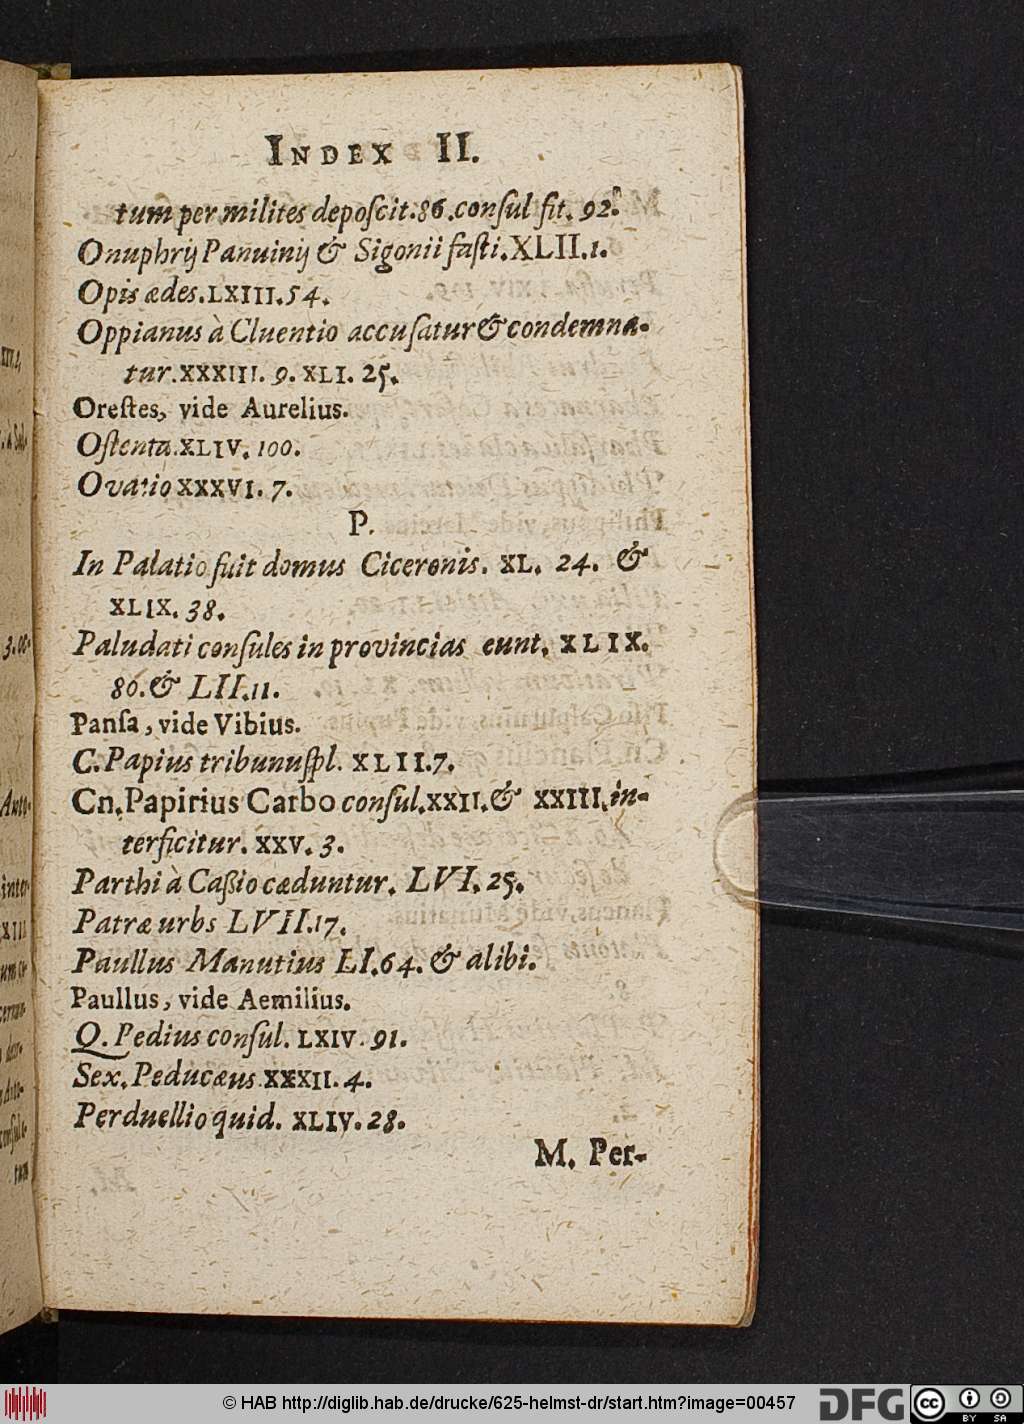 INDEX II.
tum per milites depoſcit. 86. conſul fit. 92.
Onuphrij Panuinij & Sigonii faſti. XLII. 1.
Opis ædes. LXIII. 54.
Oppianus à Cluentio accuſatur & condemna-
tur. XXXIII. 9. XLI. 25.
Oreſtes, vide Aurelius.
Oſtenta. XLIV. 100.
Ovatio XXXVI. 7.
P.
In Palatio fuit domus Ciceronis. XL. 24. &
XLIX. 38.
Paludati conſules in provincias eunt. XLIX.
86. & LII. 11.
Panſa, vide Vibius.
C. Papius tribunuſpl. XLII. 7.
Cn. Papirius Carbo conſul. XXII. & XXIII. in-
terficitur. XXV. 3.
Parthi à Caßio cæduntur. LVI. 25.
Patræ urbs LVII. 17.
Paullus Manutius LI. 64. & alibi.
Paullus, vide Aemilius.
Q. Pedius conſul. LXIV. 91.
Sex. Peducæus. XXXII. 4.
Perduellio quid. XLIV. 28.
M. Per-
© HAB http://diglib.hab.de/drucke/625-helmst-dr/start.htm?image=00457
DFG
cc BY SA